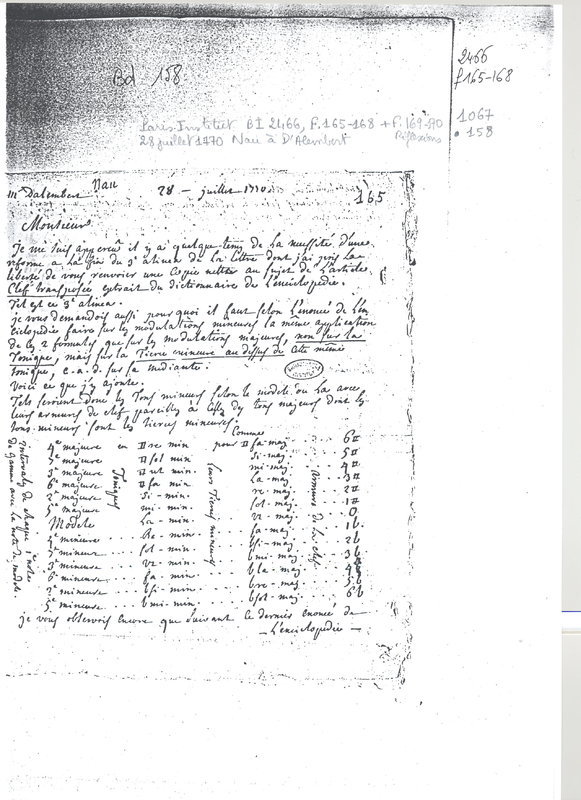 2466
f 165-168
Bd 158
1067
158
Paris. Institut BI 2466, F. 165-168 + F. 169-170
Réflexions
28 juillet 1770 Nau à D'Alembert
165
Mr Dalembert Nau 28 - juillet 1770.
Monsieur
Je me suis apperçu il y a quelque tems de la necessité d'une
reforme a la fin du 3e alinea de la lettre dont j'ai pris la
liberté de vous renvoier une Copie nette au sujet de l'article
Clef transposée extrait du dictionnaire de l'enciclopedie.
Tel est ce 3e alinea.
je vous demandois aussi pourquoi il faut selon l'enoncé de l'en
ciclopedie faire sur les modulations mineures la même application
de les 2 formules que sur les modulations majeures, non sur la
Tonique, mais sur la Tierce mineure au dessus de cette même
tonique, c.a.d. sur la mediante.
Voici ce que j'y ajoute.
Tels seroient donc les Tons mineurs selon le modele ou La avec
leurs armures de clef pareilles à celles des tons majeurs dont les
tons mineurs sont les tierces mineures.
Comme
4e majeure en #re min pour #fa maj. . . . 6#
7e majeure #sol min. . . . si-maj . . . 5#
3e majeure #ut min. . . . mi-maj . . . 4#
6e majeure #fa min . . . La-maj . . . 3#
2e majeure si-min. . . . re-maj . . . 2#
5e majeure mi-min. . . . sol-maj . . . 1#
Modele La-min. . . . ut-maj . . . 0
4e mineure . . . Re-min. . . . fa-maj . . . 1b
7e mineure . . . sol-min. . . . bsi-maj . . . 2b
3e mineure . . . ut-min. . . . bmi-maj . . . 3b
6e mineure . . . fa min. . . . bla-maj . . . 4b
2e mineure . . . bsi-min. . . . bre-maj . . . 5b
5e mineure . . . bmi-min . . . bsol-maj . . . 6b
Intervales de chaque 1e note
de gamme avec la note du modele
Toniques
leurs Tierces mineures
Armures de la clef
je vous observois encore que suivant le dernier enoncé de
- L'enciclopedie -